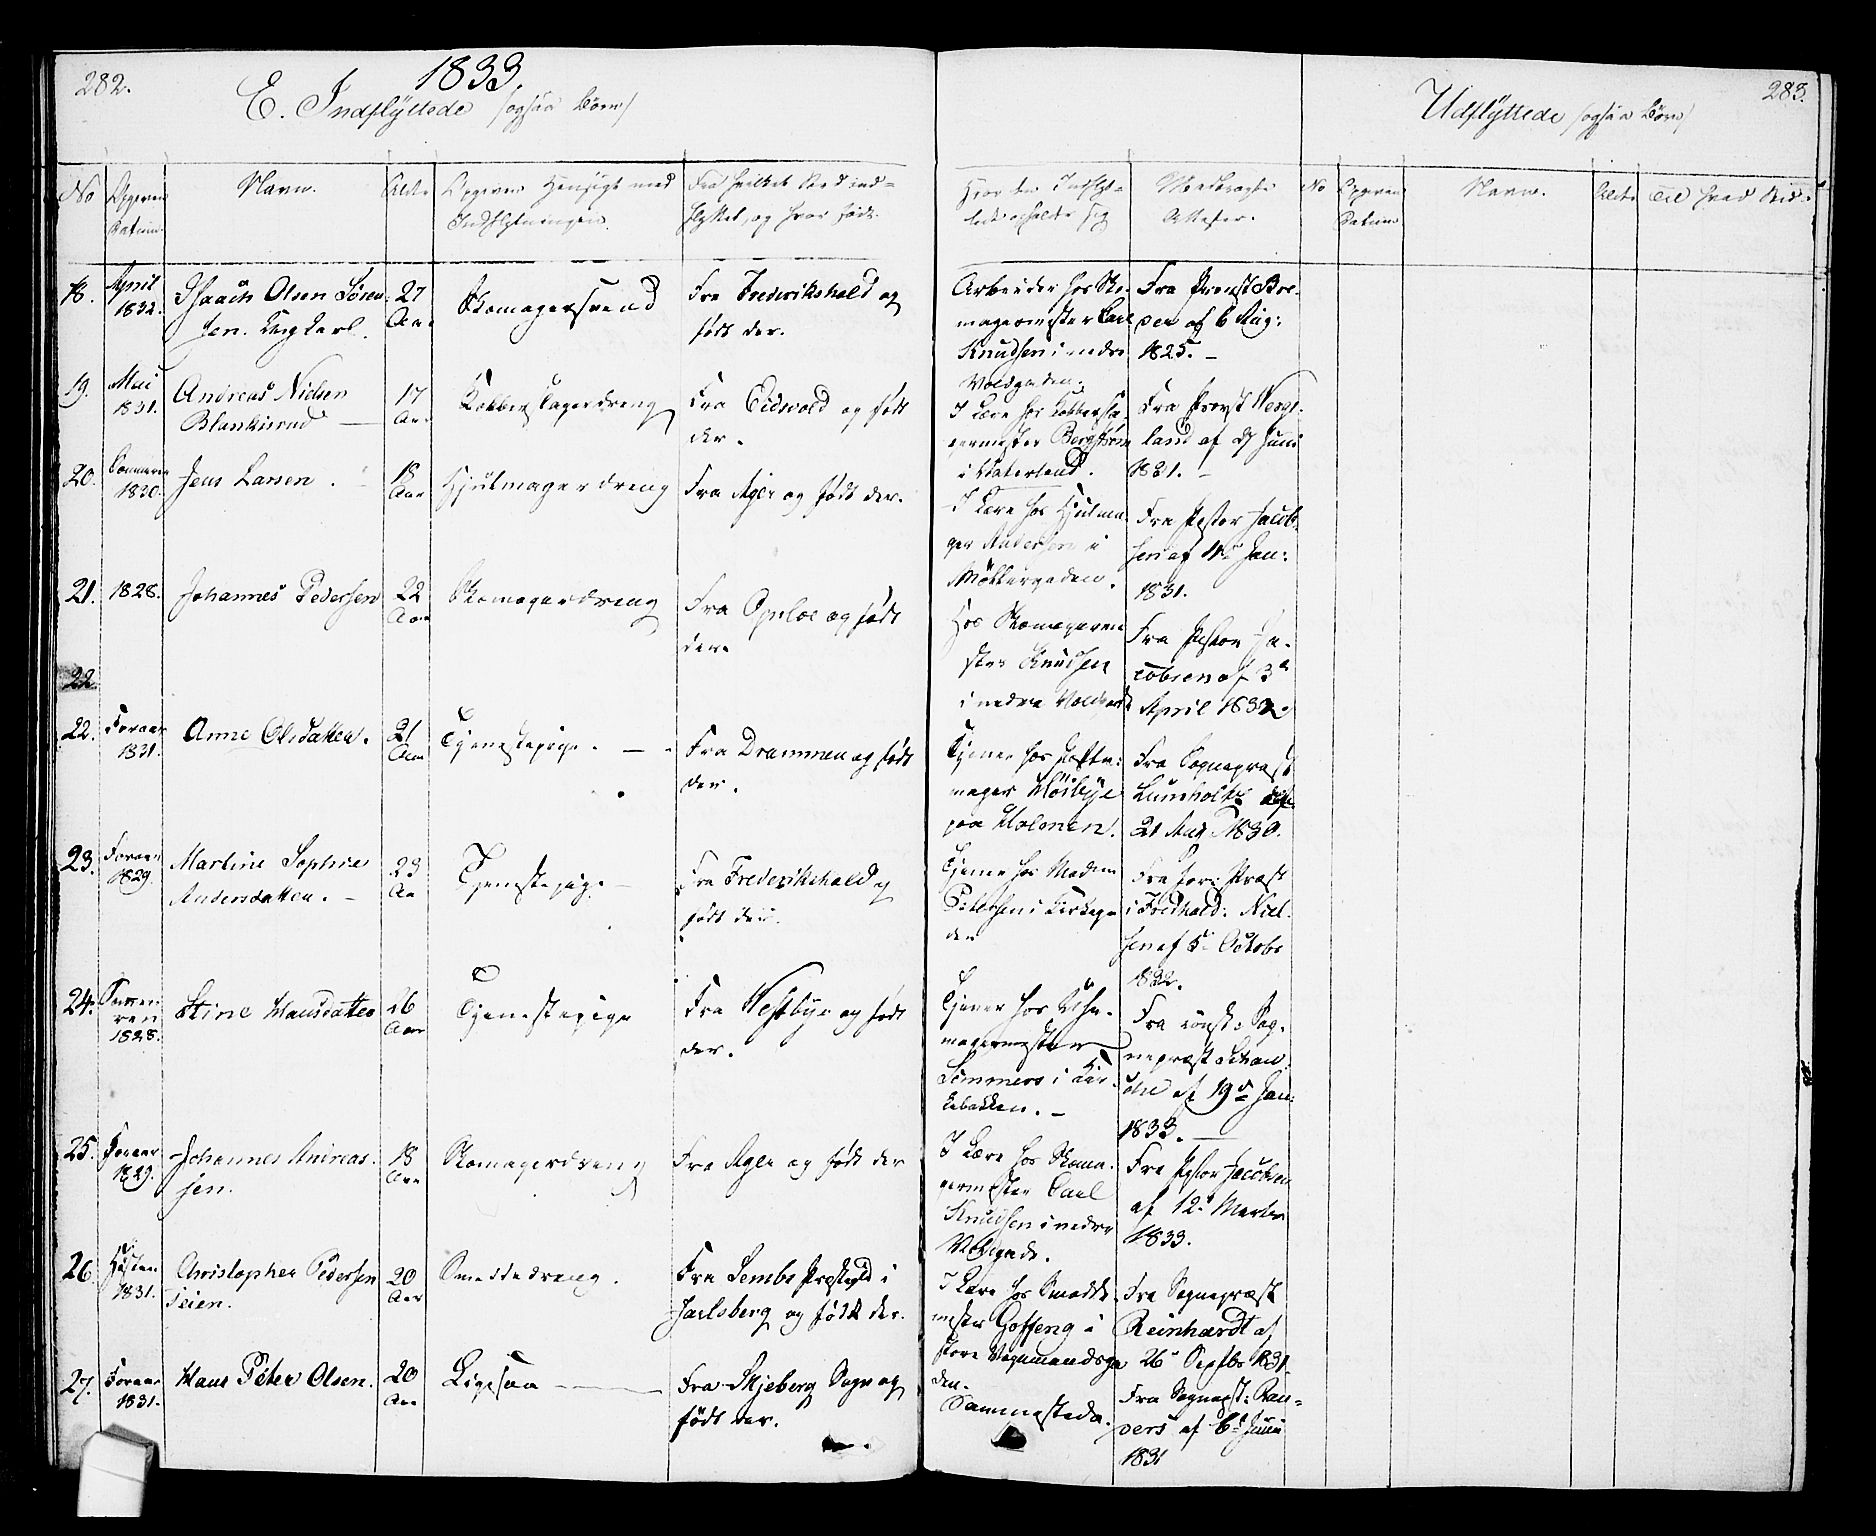 282.
1833.
E. Indflyttede /ogsaa Börn/
No
Opgiven Datum
Navn.
Alder
Opgiven Hensigt med Indflytningen.
Fra hvilket Sted ind=
flyttet, og hvor född.
Hvor den Indflyt=
tede opholder sig
Medbragte Attester.
18.
April
1832.
Isaach Olsen Sören
sen. Ung Karl.
27
Aar
Skomagersvend
Fra Frederikshald og
födt der.
Arbeider hos Sko-
magermester Carl
Knudsen i nedre
Voldgaden.
Fra Provst Bre-
der af 6 Aug:
1825. –
19.
Mai
1831.
Andreas Nielsen
Blankisrud —
17
Aar
Kobberslagerdreng
Fra Eidsvold og födt
der.
I Lære hos Kobbersla-
germester Bergström
i Vaterland.
Fra Provst Werge-
land af Juni
1831. –
20.
Sommeren
1830.
Jens Larsen.
18
Aar
Hjulmagerdreng
Fra Ager og födt der.
I Lære hos Hjulma-
ger Andersen i
Möllergaden.
Fra Pastor Jacob-
sen af Jan:
1831.
21.
1828.
Johannes Pedersen
22
Aar
Skomagerdreng
Fra Opsloe og födt
der.
Hos Skomagerme
ster Knudsen
i nedre Voldgade
Fra Pastor Ja-
cobsen af 3d
April 1832.
22.
22.
Foraar
1831.
Anne Olsdatter.
21
Aar
Tjenestepige. —
Fra Drammen og födt
der.
Tjener hos
mager Mösbye
paa Holmen.
Fra Sognepræst
Lumholtz
21 Aug 1830.
23.
Foraar
1829.
Martine Sophie
Andersdatter. –
23
Aar
Tjenestepige –
Fra Frederikshald og
födt der.
Tjener hos Madam
Petersen i Kirkega
den
Fra Præst
i Fredhald: Niel-
sen af 5 Octobr
1832.
24.
Sommeren
1828.
Stine Hansdatter
26
Aar
Tjenestepige
Fra Vestbye og födt
der.
Tjener hos Uhr-
magermester
Simmers i Kir-
kebakken. –
Fra const: Sog-
nepræst
af 19d Jan:
1833. —
25.
Foraar
1829.
Johannes Andreas-
sen.
18
Aar
Skomagerdreng
Fra Ager og födt der
I Lære hos Skoma-
germester Carl
Knudsen i nedre
Volgade.
Fra Pastor Jacobsen
af 12d Marts
1833.
26.
Hösten
1831.
Christopher Pedersen
Teien.
20
Aar
Smeddedreng.
Fra Sembs Præstegjld i
Jarlsberg og födt der.
I Lære hos Smedde-
mester Goffeng i
store Vognmandsga
den.
Fra Sognepræst
Reinhardt af
26d Septbr 1831.
27.
Foraar
1831.
Hans Peter Olsen.
20
Aar
Ligesaa —
Fra Skjeberg Sogn og
födt der.
Sammesteds.
Fra Sognepst: Ran-
ders af 6d Juni
1831
283.
Udflyttede /ogsaa Börn/
No
Opgiven Datum
Navn.
Alder
Til hvad Sted.